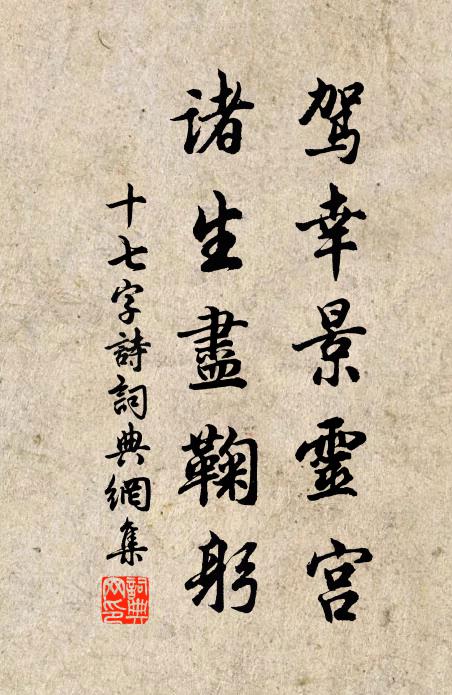 驾幸景靈宫
诸生盡鞠躬
十七字詩詞典網集
詞典